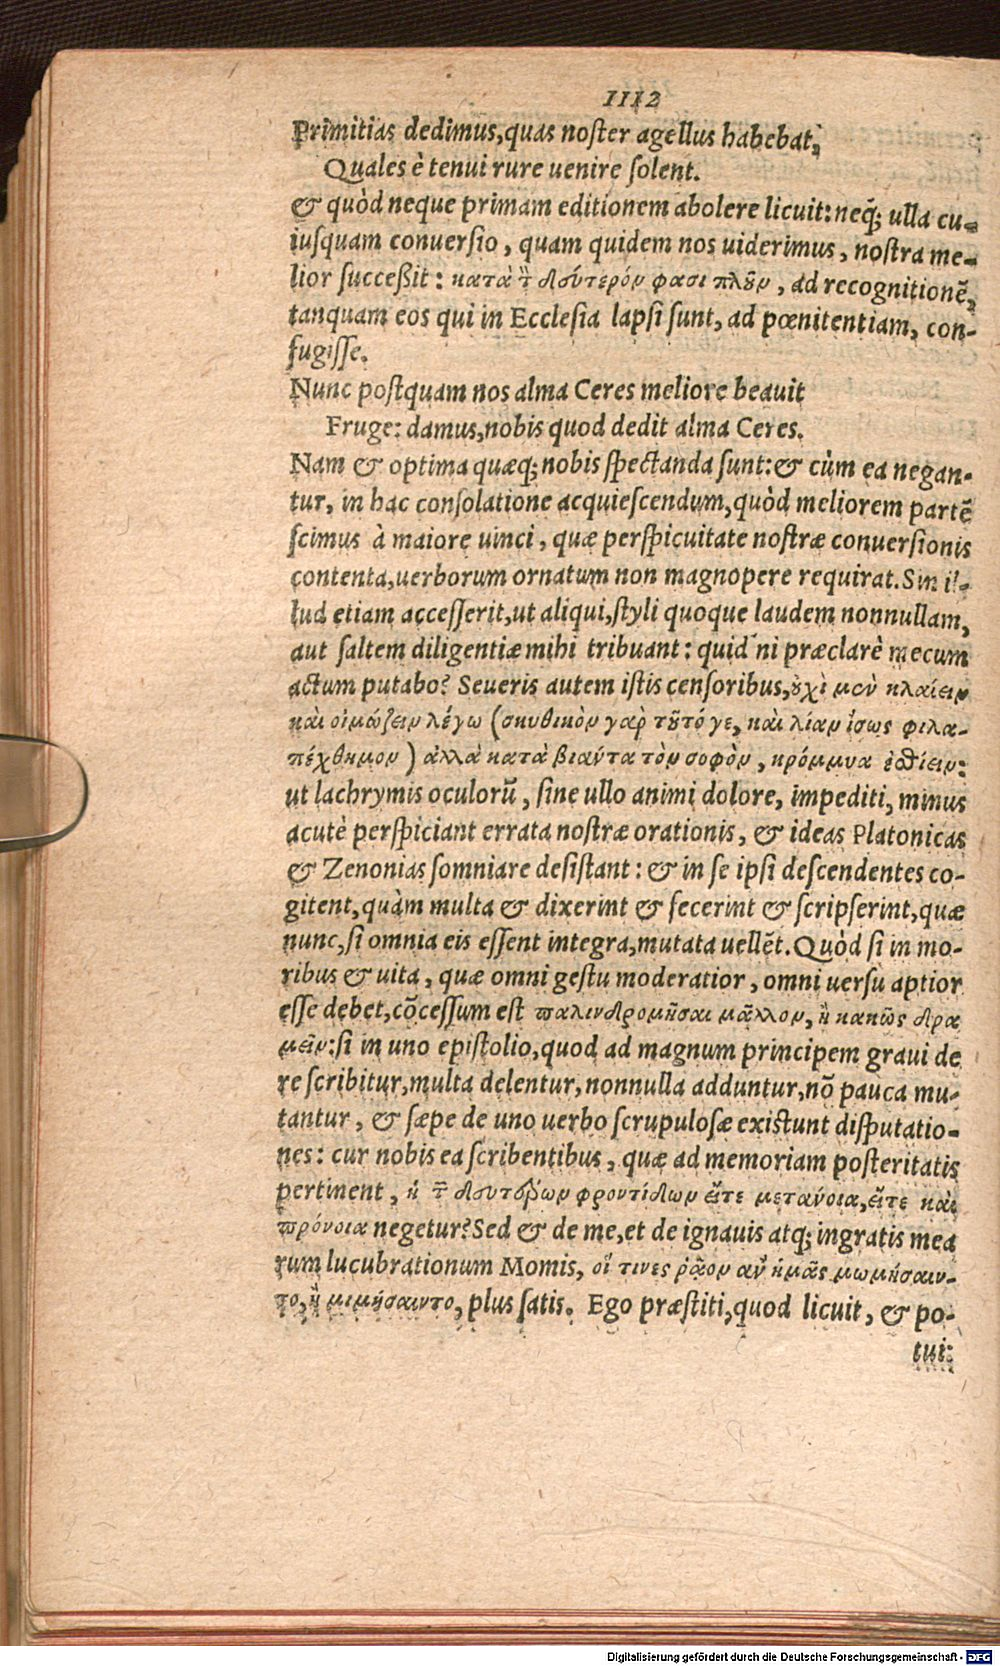 1112
Primitias dedimus,quas noſter agellus habebat,
Quales è tenui rure uenire ſolent.
& quòd neque primam editionem abolere licuit:neq́; ulla cu-
iuſquam conuerſio, quam quidem nos uiderimus, noſtra me-
lior ſucceßit: κατὰ τ̀ δεύτερόν φασι πλοῦν, ad recognitionẽ,
tanquam eos qui in Eccleſia lapſi ſunt, ad pœnitentiam, con-
fugiſſe.
Nunc poſtquam nos alma Ceres meliore beauit
Fruge: damus,nobis quod dedit alma Ceres.
Nam & optima quæq; nobis ſpectanda ſunt:& cùm ea negan-
tur, in hac conſolatione acquieſcendum,quòd meliorem partẽ
ſcimus à maiore uinci, quæ perſpicuitate noſtræ conuerſionis
contenta,uerborum ornatum non magnopere requirat.Sin il-
lud etiam acceſſerit,ut aliqui,ſtyli quoque laudem nonnullam,
aut ſaltem diligentiæ mihi tribuant: quid ni præclarè mecum
actum putabo? Seueris autem iſtis cenſoribus,οὐχὶ μὰν κλαίειν
καὶ οἰμώζειν λέγω (σκυθικὸν γαρ τοῦτό γε, καὶ λίαν ἴσως φιλα-
πέχθημον) ἀλλὰ κατὰ βιαύτα τὸν σοφὸν, κρόμμυα ἐσθίειν:
ut lachrymis oculorũ, ſine ullo animi dolore, impediti, minus
acutè perſpiciant errata noſtræ orationis, & ideas Platonicas
& Zenonias ſomniare deſiſtant: & in ſe ipſi deſcendentes co-
gitent,quàm multa & dixerint & fecerint & ſcripſerint,quæ
nunc,ſi omnia eis eſſent integra,mutata uellẽt.Quòd ſi in mo-
ribus & uita, quæ omni geſtu moderatior, omni uerſu aptior
eſſe debet,cõceſſum eſt παλινδρομῆσαι μᾶλλον, ἢ κακῶς δρα
μεῖν:ſi in uno epiſtolio,quod ad magnum principem graui de
re ſcribitur,multa delentur,nonnulla adduntur,nõ pauca mu-
tantur, & ſæpe de uno uerbo ſcrupuloſæ exiſtunt diſputatio-
nes: cur nobis ea ſcribentibus, quæ ad memoriam poſteritatis
pertinent, ἡ τ̃ δευτέρων φροντίδων εἴτε μετάνοια,εἴτε καὶ
πρόνοια negetur?Sed & de me,et de ignauis atq; ingratis mea
rum lucubrationum Momis, οἵ τινες ῥᾷον ἂν ἡμᾶς μωμήσαιν-
το,ἢ μιμήσαιντο, plus ſatis. Ego præſtiti,quod licuit, & po-
tui:
Digitalisierung gefördert durch die Deutsche Forschungsgemeinschaft - DFG